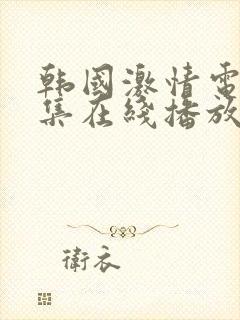 韩国激情电
集在线播放
衛衣